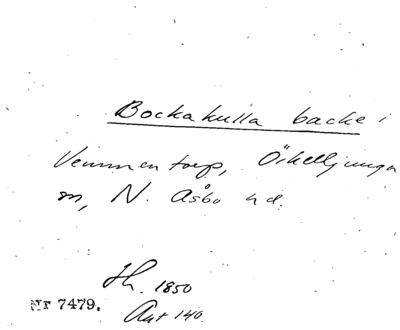 Bockakulla backe i
Vemmentorp, Örkelljunga
sn, N. Åsbo hd.
Sk. 1850
Nr 7479.
Ant 140.